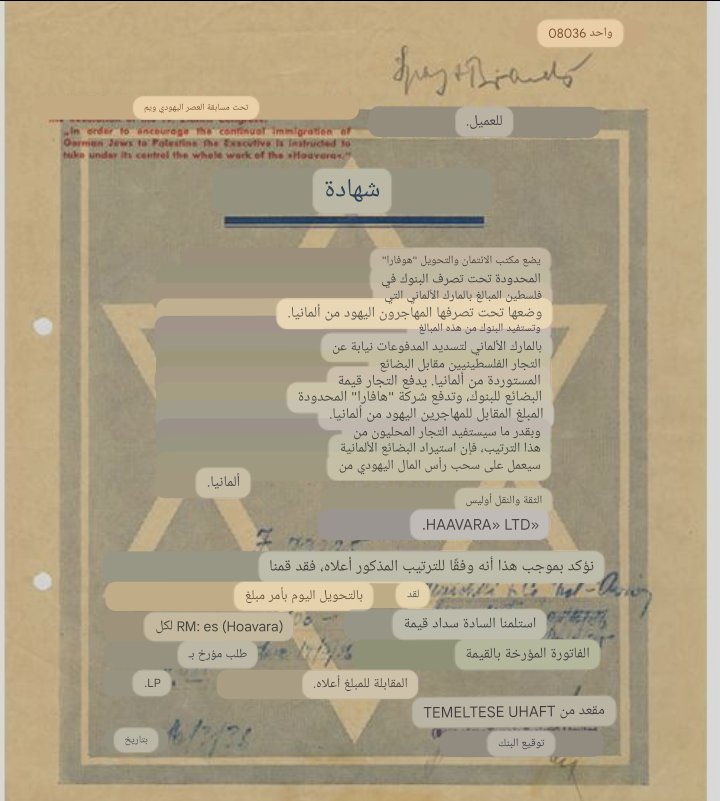 واحد 08036
تحت مسابقة العصر اليهودي ويم
للعميل.
„In order to encourage the continual immigration of
German Jews to Palestine the Executive is instructed to
take under its control the whole work of the »Haavara«."
شهادة
يضع مكتب الائتمان والتحويل "هوفارا"
المحدودة تحت تصرف البنوك في
فلسطين المبالغ بالمارك الألماني التي
وضعها تحت تصرفها المهاجرون اليهود من ألمانيا.
وتستفيد البنوك من هذه المبالغ
بالمارك الألماني لتسديد المدفوعات نيابة عن
التجار الفلسطينيين مقابل البضائع
المستوردة من ألمانيا. يدفع التجار قيمة
البضائع للبنوك، وتدفع شركة "هافارا" المحدودة
المبلغ المقابل للمهاجرين اليهود من ألمانيا.
وبقدر ما سيستفيد التجار المحليون من
هذا الترتيب، فإن استيراد البضائع الألمانية
سيعمل على سحب رأس المال اليهودي من
ألمانيا.
الثقة والنقل أوليس
«HAAVARA» LTD.
نؤكد بموجب هذا أنه وفقًا للترتيب المذكور أعلاه، فقد قمنا
لقد بالتحويل اليوم بأمر مبلغ
استلمنا السادة سداد قيمة RM: es (Hoavara) لكل
الفاتورة المؤرخة بالقيمة طلب مؤرخ بـ
المقابلة للمبلغ أعلاه. LP.
مقعد من TEMELTESE UHAFT
توقيع البنك بتاريخ